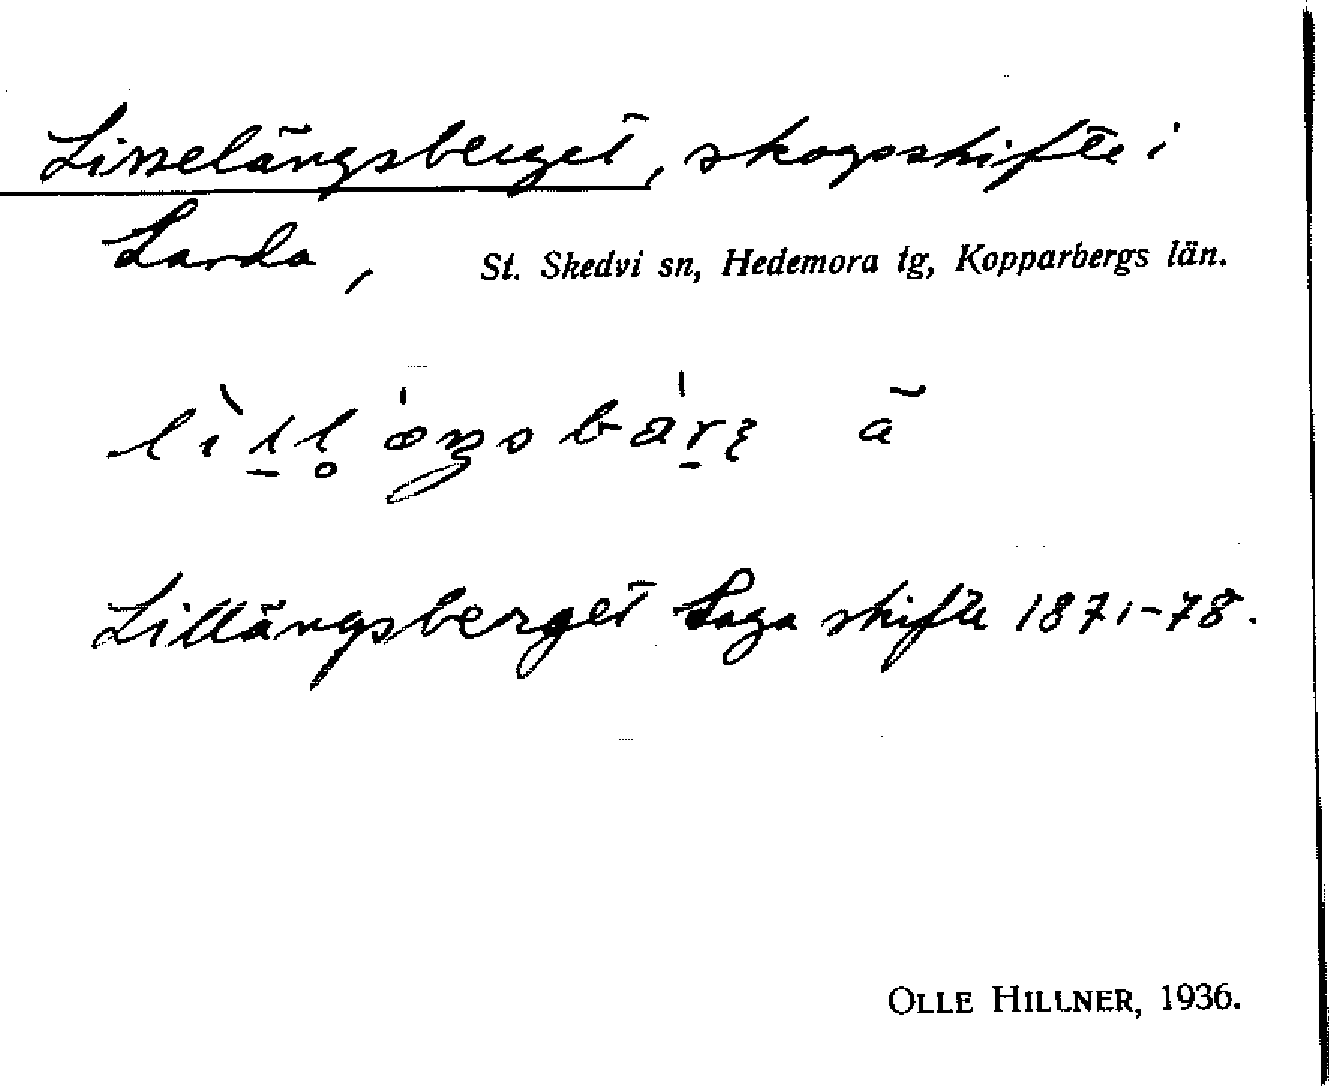 Lisselängsberget, skogsskifte i
Landa, St. Skedvi sn, Hedemora tg, Kopparbergs län.
Lillängsberget Laga skifte 1871-78.
OLLE HILLNER, 1936.